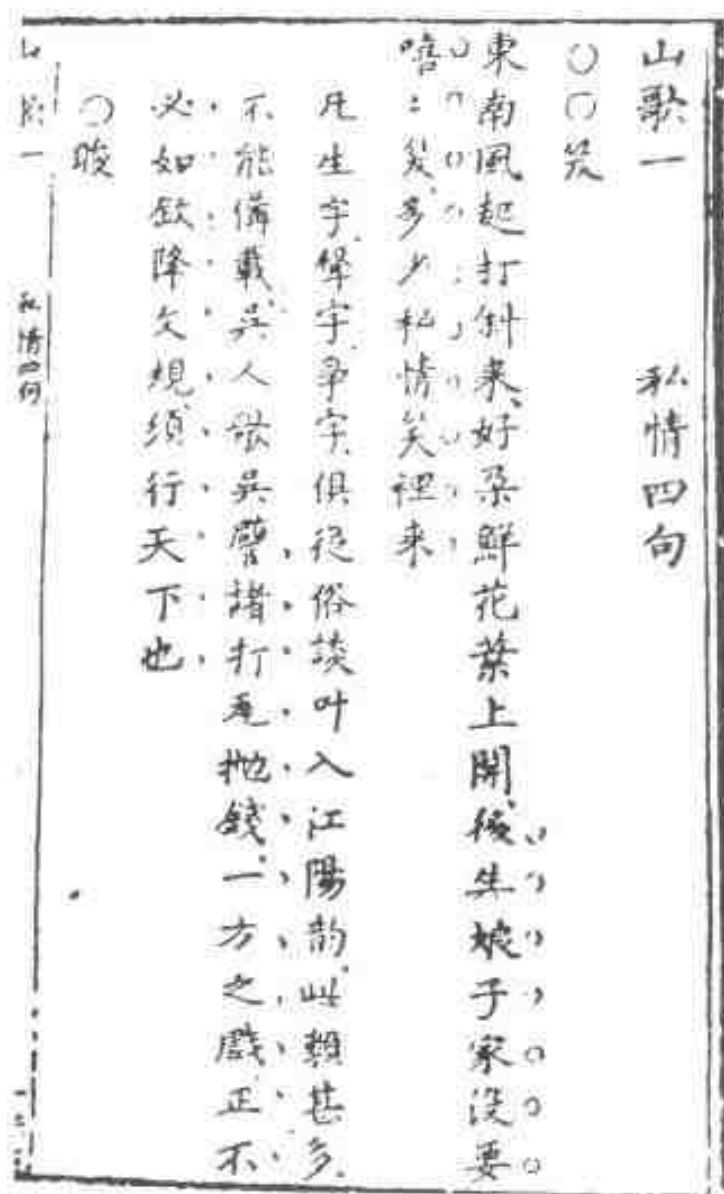 山歌一　私情四句
○○笑
東南風起打斜来好朶鮮花葉上開後生娘子家没要
嘻〻笑多少私情笑裡来
凡生字聲字爭字俱從俗談叶入江陽韵此類甚多
不能備載吴人歌吴譬諸打瓦抛錢一方之戲正不
必如欽降文規須行天下也
○睃
山歌一
私情四句